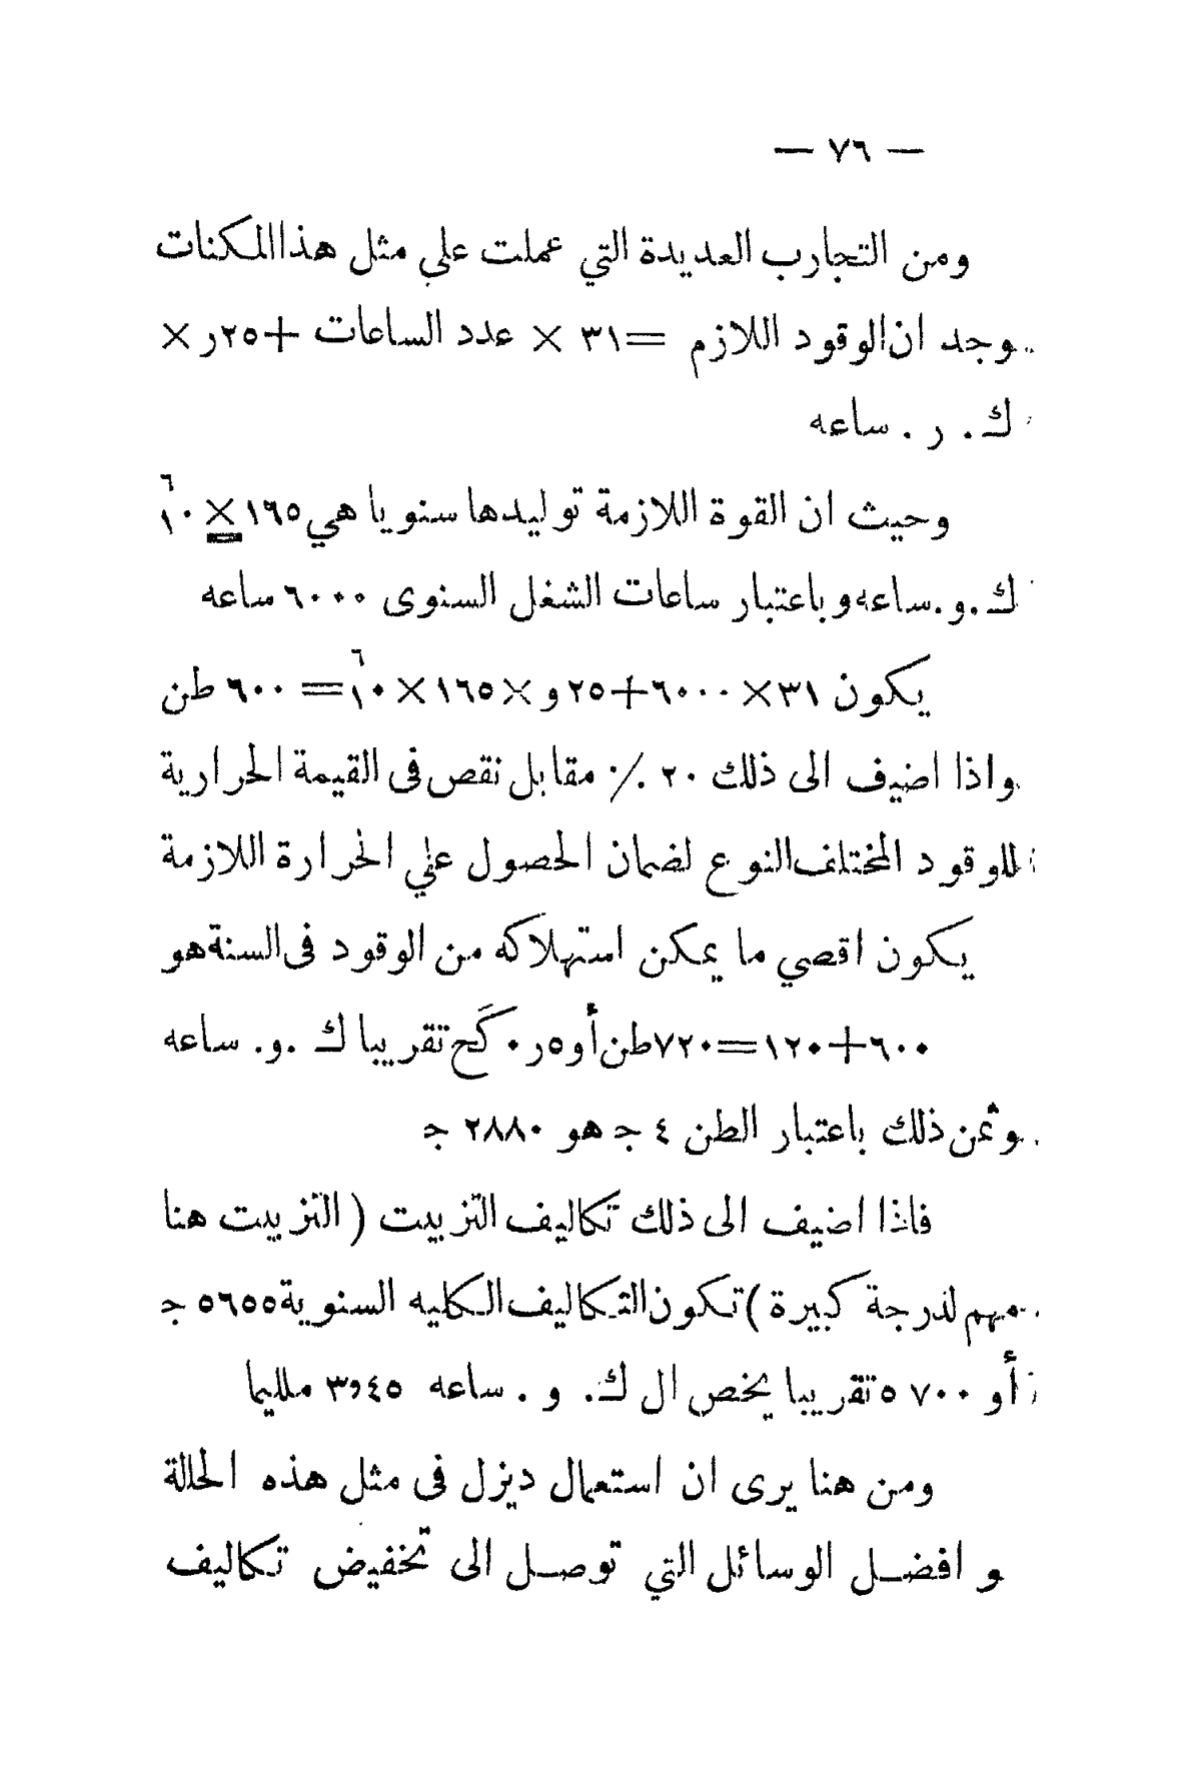 — ٧٦ —
ومن التجارب العديدة التي عملت علي مثل هذا المكنات
وجد ان الوقود اللازم = ٣١ × عدد الساعات + ٢٥ر ×
ك. ر. ساعه
وحيث ان القوة اللازمة توليدها سنويا هي ١٦٥ × ١٠^٦
ك.و.ساعه وباعتبار ساعات الشغل السنوى ٦٠٠٠ ساعه
يكون ٣١ × ٦٠٠٠ + ٢٥و × ١٦٥ × ١٠^٦ = ٦٠٠ طن
واذا اضيف الى ذلك ٢٠ ٪ مقابل نقص فى القيمة الحرارية
للوقود المختلف النوع لضمان الحصول علي الحرارة اللازمة
يكون اقصي ما يمكن استهلاكه من الوقود فى السنة هو
٦٠٠ + ١٢٠ = ٧٢٠ طن أو ٥ر٠ كج تقريبا ك .و. ساعه
وثمن ذلك باعتبار الطن ٤ ج هو ٢٨٨٠ ج
فاذا اضيف الى ذلك تكاليف التزييت ( التزييت هنا
مهم لدرجة كبيرة ) تكون التكاليف الكليه السنوية ٥٦٥٥ ج
أو ٥٧٠٠ تقريبا يخص ال ك. و. ساعه ٣و٤٥ مليما
ومن هنا يرى ان استعمال ديزل فى مثل هذه الحالة
و افضل الوسائل التي توصل الى تخفيض تكاليف